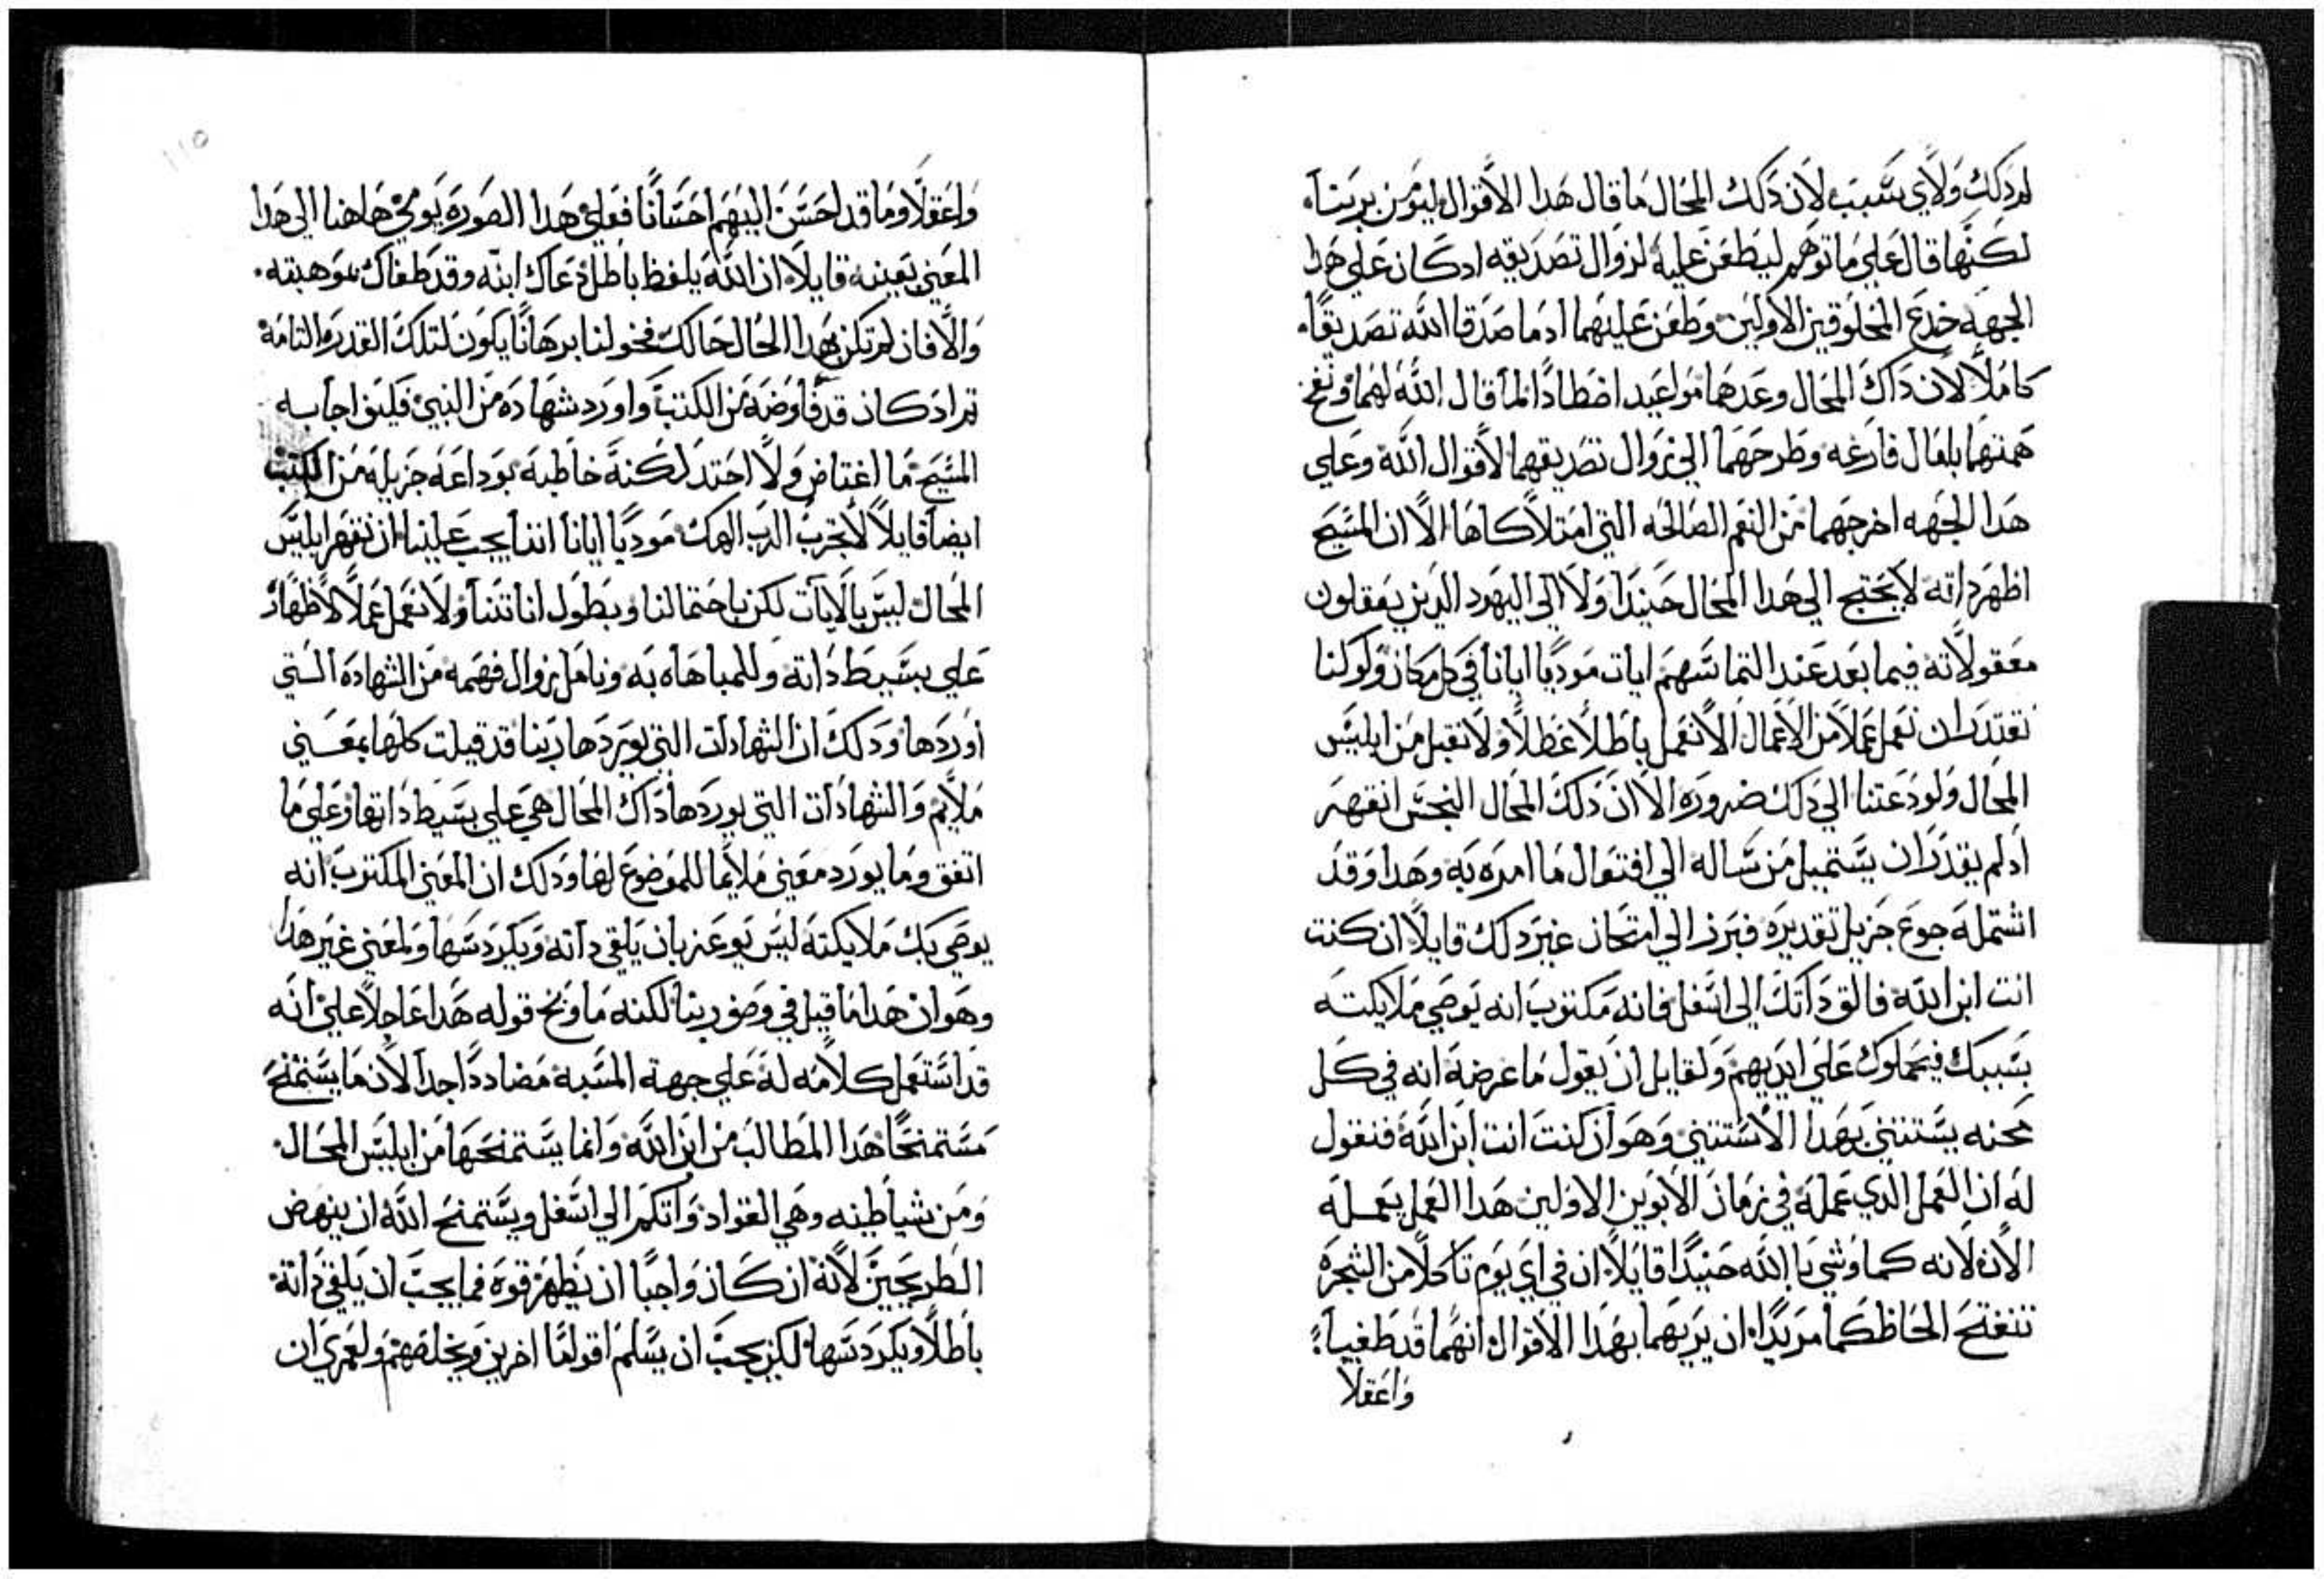 لم ذلك ولاي سبب لان ذلك المحال ما قال هذا الاقوال ليومن بربنا
لكنها قال علي ما توهم ليطعن عليه لزوال تصديقه اد كان علي هذا
الجهه خدع المخلوقين الاولين وطعن عليهما ادما صدقا الله تصديقا
كاملا لان داك المحال وعدهما مواعيد اضطادا لما قال الله لهما ونفخ
همتهما بامال فارغه وطرحهما الي زوال تصديقهما لاقوال الله وعلي
هدا الجهه اخرجهما من النعم الصالحه التي امتلاكاها الا ان المسيح
اظهر داته لا يحتج الي هدا المحال حنيدا ولا الي اليهود الدين يعقلون
معقولاته فيما بعد عند التماسهم ايات موديا ايانا في كل مكان ولو كنا
نقتدر ان نعمل عملا من الاعمال الا نعمل باطلا غطلا ولا نقبل من ابليس
المحال ولو دعتنا الي دلك ضروره الا ان دلك المحال النجس انقهر
اد لم يقدر ان يستميل من ساله الي افتعال ما امره به وهدا وقد
اشتمله جوع جزيل تقديره فبرز الي امتحان غير دلك قايلا ان كنت
انت ابن الله فالق داتك الي اسفل فانه مكتوب انه يوصي ملايكته
بسببك فيحملوك علي ايديهم ولقايل ان يقول ما عرضه انه في كل
محنه يستتني بهدا الاستتني وهو ان كنت انت ابن الله فنقول
له ان العمل الدي عمله في زمان الابوين الاولين هدا العمل يعمله
الان لانه كما وشي بالله حنيدا قايلا ان في اي يوم تاكلا من الشجره
تنفتح الحاظكما مريدا ان يريهما بهدا الاقوال انهما قد طغيا
واعقلا
واعقلا وما قد احسن اليهم احسانا فعلي هدا الصوره يومي هاهنا الي هدا
المعني بعينه قايلا ان الله يلفظ باطل دعاك ابنه وقد طغاك بموهبته
والا فان لم تكن بهدا الحال حالك فخولنا برهانا يكون لتلك القدره التامه
تم اد كان قد فاوضه من الكتب واورد شهاده من النبي فليف اجابه
المسيح ما اغتاض ولا احتد لكنه خاطبه بوداعه جزيله من الكتب
ايضا قايلا لا تجرب الرب الهك موديا ايانا اننا يجب علينا ان نقهر ابليس
المحال ليس بالايات لكن باحتمالنا وبطول اناتنا ولا نعمل عملا لاظهار
علي بسيط داته وللمباهاه به وتامل زوال فهمه من الشهاده التي
اوردها ودلك ان الشهادات التي يوردها ربنا قد قيلت كلها بمعني
ملايم والشهادات التي يوردها داك المحال هي علي بسيط داتها وعلي ما
اتفق وما يورد معني ملايما للموضوع لها ودلك ان المعني المكتوب انه
يوصي بك ملايكته ليس يوعز بان يلقي داته ويكردسها ولمعني غير هدا
وهو ان هدا ما قيل في وصف ربنا لكنه ما وبخ قوله هدا عاجلا علي انه
قد استعمل كلامه له علي جهة المسبه مضاددا جدا لان ما يستمنح
مستمنحا هدا المطالب من ابن الله وانما يستمنحها من ابليس المحال
ومن شياطينه وهي القواد داتكم الي اسفل ويستمنح الله ان ينهض
الطريحين لانه ان كان واجبا ان يظهر قوه فما يجب ان يلقي داته
باطلا ويكردسها لكن يجب ان يسلم اقواما اخرين ويخلصهم ولعمري ان